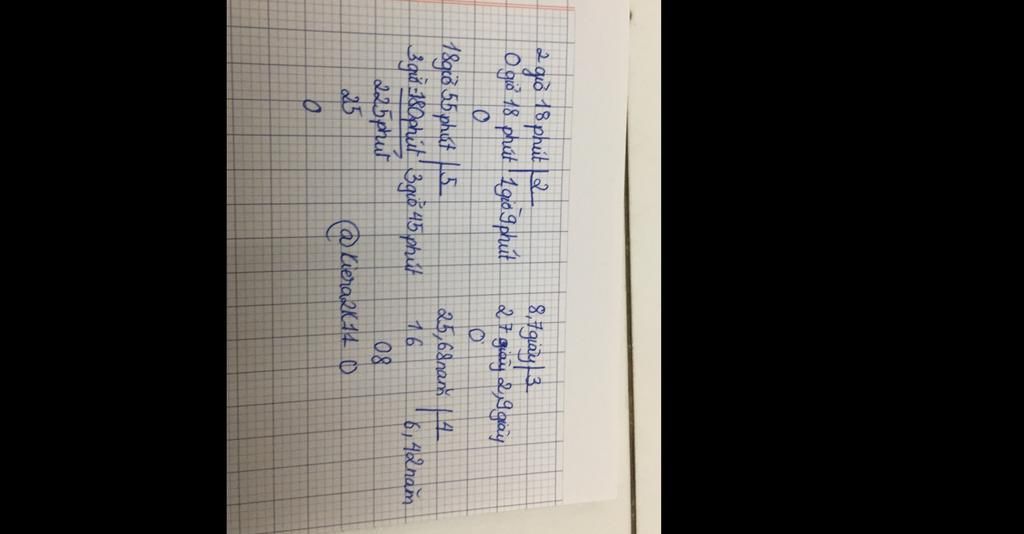 2 giờ 18 phút | 2
0 giờ 18 phút | 1 giờ 9 phút
0
8,7 giây | 3
27 giây 2,9 giây
0
18 giờ 55 phút | 5
3 giờ = 180 phút 3 giờ 45 phút
225 phút
25
0
25,68 năm | 4
16 6,42 năm
08
0
@Kiera2K11